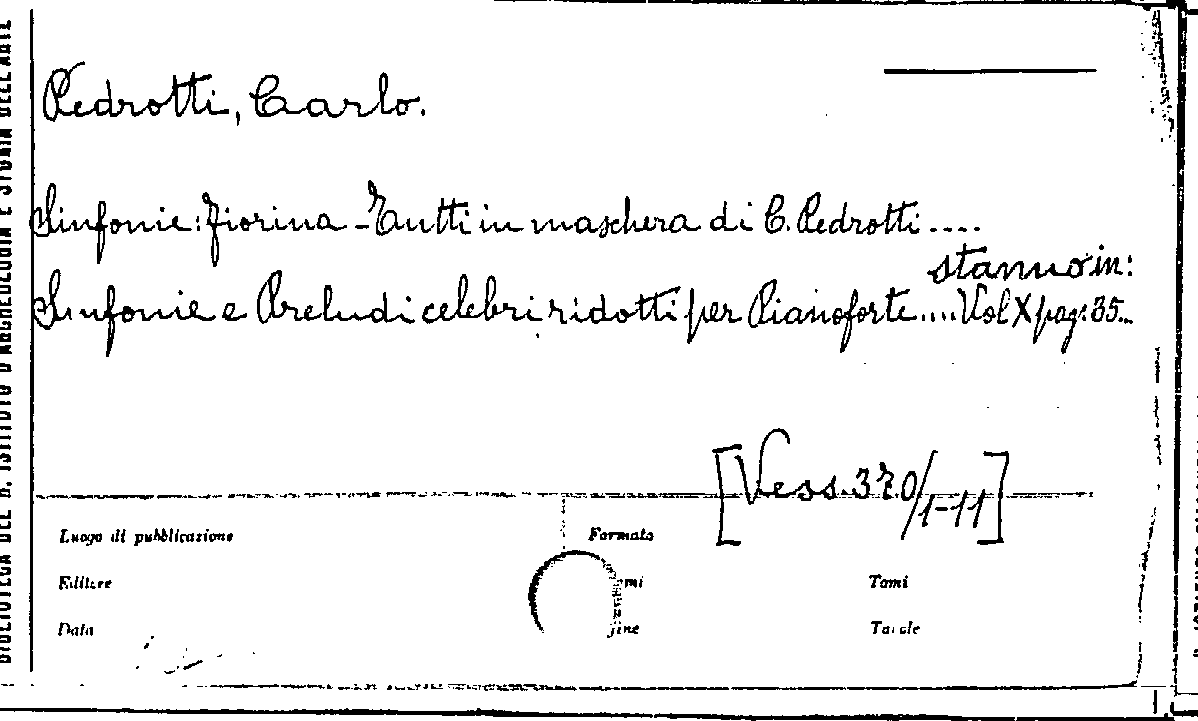 Pedrotti, Carlo.
Sinfonie: Fiorina - Tutti in maschera di C. Pedrotti ....
stanno in:
Sinfonie e Preludi celebri ridotti per Pianoforte .... Vol X pag: 35...
[Vess. 370/1-11]
Luogo di pubblicazione
Formato
Editore
Tomi
Data
Tavole
BIBLIOTECA DEL R. ISTITUTO D'ARCHEOLOGIA E STORIA DELL'ARTE